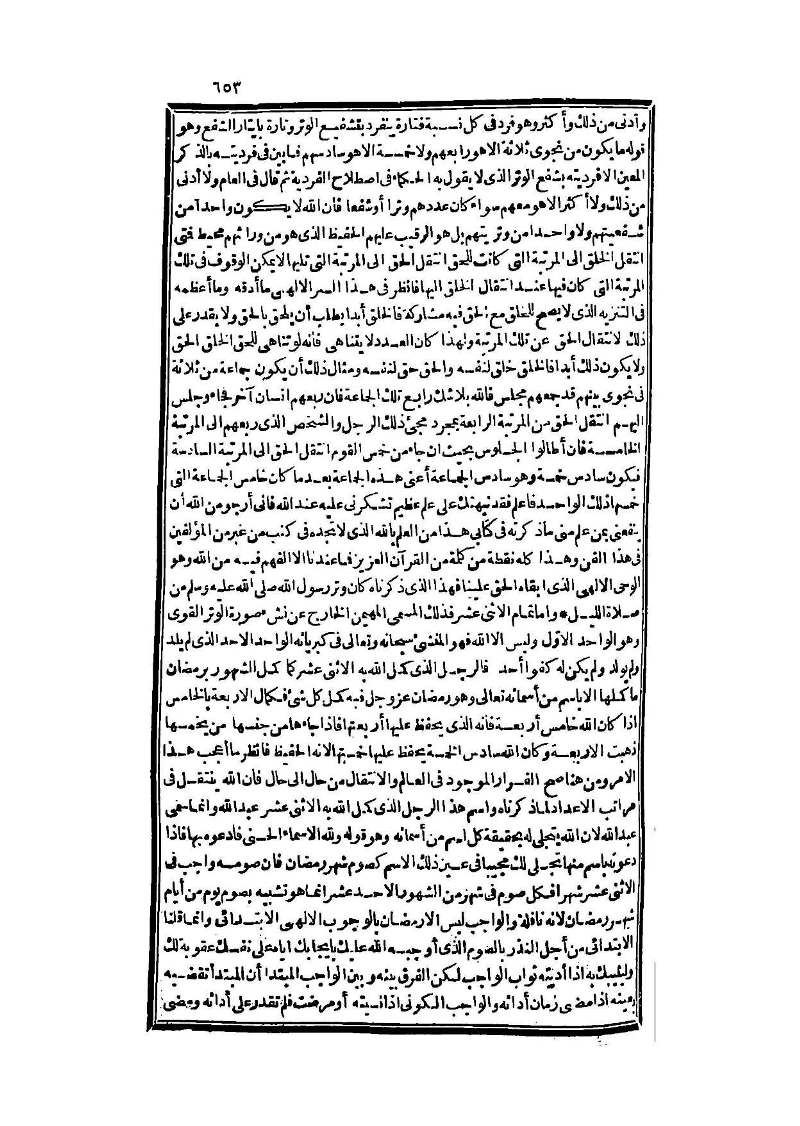 ٦٥٣
وأدنى من ذلك وأكثر وهو فرد فى كل نسبة فتارة ينفرد بتشفيع الوتر وتارة بايتار الشفع وهو
قوله ما يكون من نجوى ثلاثة الا هو رابعهم ولا خمسة الا هو سادسهم فبابين فى فرديته بالذكر
المعين الا فرديته بشفع الوتر الذى لا يقول به الحكماء فى اصطلاح الفردية ثم قال فى العام ولا أدنى
من ذلك ولا أكثر الا هو معهم سواء كان عددهم وترا أو شفعا فان الله لا يكون واحدا من
شفعيتهم ولا واحدا من وتريتهم بل هو الرقيب عليهم الحفيظ الذى هو من ورائهم محيط فتى
انتقل الخلق الى المرتبة التى كانت للحق انتقل الحق الى المرتبة التى تليها لا يمكن الوقوف فى تلك
المرتبة التى كان فيها عند انتقال الخلق اليها فانظر فى هذا السر الالهى ما أدقه وما أعظمه
فى التنزيه الذى لا يصح للخلق مع الحق فيه مشاركة فالخلق أبدا يطلب أن يلحق بالحق ولا يقدر على
ذلك لانتقال الحق عن تلك المرتبة ولهذا كان العدد لا يتناهى فانه لو تناهى للحق الخلق الحق
ولا يكون ذلك أبدا فالخلق خلق لنفسه والحق حق لنفسه ومثال ذلك أن يكون جماعة من ثلاثة
فى نجوى بينهم قد جمعهم مجلس فالله بلا شك رابع تلك الجماعة فان ربعهم انسان آخر فجاء وجلس
اليهم انتقل الحق من المرتبة الرابعة بمجرد مجىء ذلك الرجل والشخص الذى ربعهم الى المرتبة
الخامسة فان أطالوا الجلوس بحيث ان جاء من خمس القوم انتقل الحق الى المرتبة السادسة
فيكون سادس خمسة وهو سادس الجماعة أعنى هذه الجماعة بعدما كان خامس الجماعة التى
خمسها ذلك الواحد فاعلم فقد نبهتك على علم عظيم تشكرنى عليه عند الله فانى أرجو من الله أن
ينفعنى بمن علم منى ما ذكرته فى كتابى هذا من العلم بالله الذى لا تجده فى كتب من غير من المؤلفين
فى هذا الفن وهذا كله نقطة من كلمة من القرآن العزيز فما عندنا الا الفهم فيه من الله وهو
الوحى الالهى الذى ابقاه الحق علينا فهذا الذى ذكرناه كان وتر رسول الله صلى الله عليه وسلم من
صلاة الليل * واما تمام الاثنى عشر فذلك المسمى المهيمن الخارج عن نشء صورة الوتر القوى
وهو الواحد الاوّل وليس الا الله فهو المنشئ سبحانه وتعالى فى كبريائه الواحد الاحد الذى لم يلد
ولم يولد ولم يكن له كفوا أحد فالرجل الذى كمل الله به الاثنى عشر كما كمل الشهور برمضان
ما كملها الا باسم من أسمائه تعالى وهو رمضان عز وجل فبه كمل كل شئ فكمال الاربعة بالخامس
اذا كان الله خامس أربعة فانه الذى يحفظ عليها أربعتها فاذا جاءها من جنسها من يخمسها
ذهبت الاربعة وكان الله سادس الخمسة يحفظ عليها خمسيتها لانه الحفيظ فانظر ما أعجب هذا
الامر ومن هنا صح الفرار الموجود فى العالم والانتقال من حال الى حال فان الله ينتقل فى
مراتب الاعداد لما ذكرناه واسم هذا الرجل الذى كمل الله به الاثنى عشر عبد الله وانما سمى
عبد الله لان الله يتجلى له بحقيقة كل اسم من أسمائه وهو قوله ولله الاسماء الحسنى فادعوه بها فاذا
دعوته باسم منها تجلى لك مجيبا فى عين ذلك الاسم كصوم شهر رمضان فان صومه واجب فى
الاثنى عشر شهرا فكل صوم فى شهر من الشهور الاحد عشر انما هو تشبيه بصوم يوم من أيام
شهر رمضان لانه نافلة والواجب ليس الا رمضان بالوجوب الالهى الابتدائى وانما قلنا
الابتدائى من أجل النذر بالصوم الذى أوجبه الله عليك بايجابك اياه على نفسك عقوبة لك
وليجيبك به اذا أديته ثواب الواجب لكن الفرق بينه وبين الواجب المبتدا أن المبتدأ تقضيه
بعينه اذا مضى زمان أدائه والواجب الكونى اذا نسيته أو مرضت فلم تقدر على أدائه ومضى